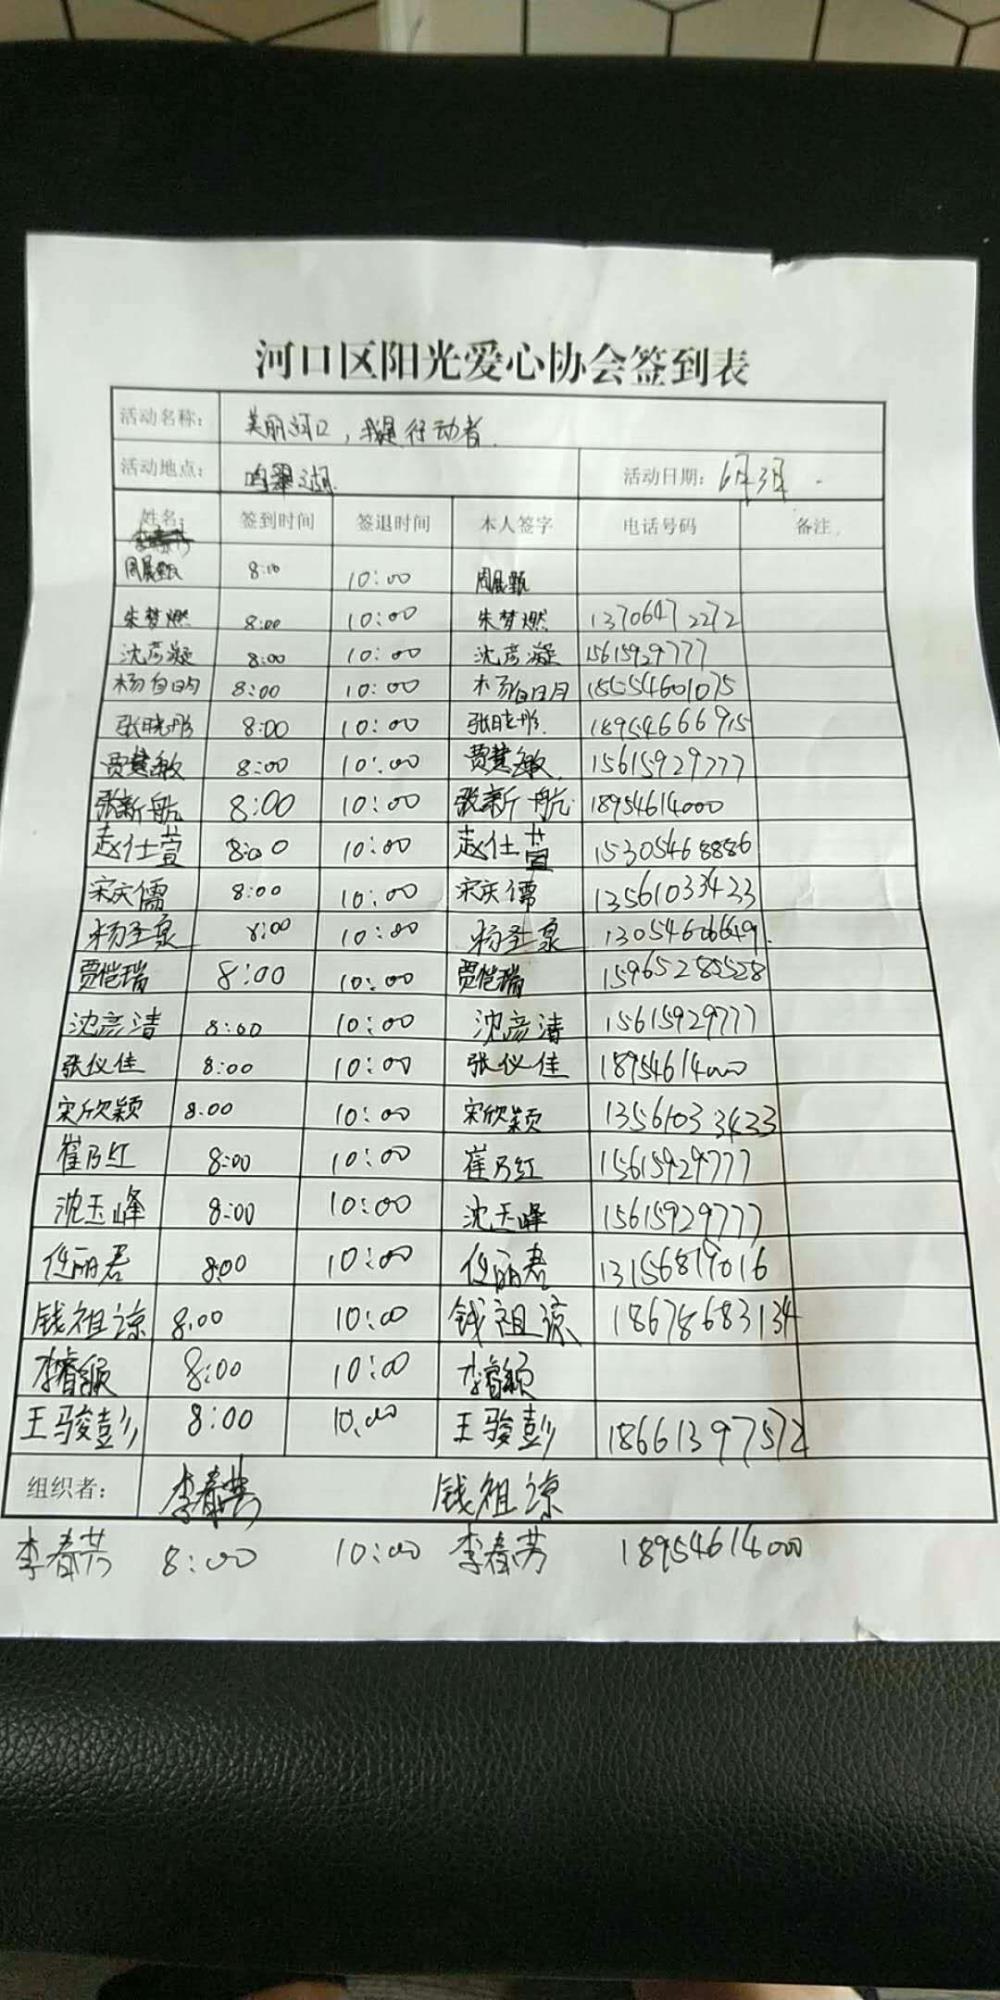 河口区阳光爱心协会签到表
活动名称： 美丽河口，我是行动者.
活动地点： 鸣翠湖. 活动日期：6月3日
姓名： 签到时间 签退时间 本人签字 电话号码 备注
周展甄 8:00 10:00 周展甄
朱梦燃 8:00 10:00 朱梦燃 13706472272
沈彦凝 8:00 10:00 沈彦凝 15615929777
杨自明 8:00 10:00 杨自明 18554601075
张晓彤 8:00 10:00 张晓彤. 18954666915
贾慧敏 8:00 10:00 贾慧敏. 15615929777
张新航 8:00 10:00 张新航 18954614000
赵仕萱 8:00 10:00 赵仕萱 15305468886
宋庆儒 8:00 10:00 宋庆儒 13561033423
杨圣泉 8:00 10:00 杨圣泉 13054606649.
贾恺瑞 8:00 10:00 贾恺瑞 15965285528
沈彦清 8:00 10:00 沈彦清 15615929777
张仪佳 8:00 10:00 张仪佳 18954614000
宋欣颖 8.00 10:00 宋欣颖 13561033423
崔乃红 8:00 10:00 崔乃红 15615929777
沈玉峰 8:00 10:00 沈玉峰 15615929777
任丽君 8:00 10:00 任丽君 13156819016
钱祖谅 8.00 10:00 钱祖谅 18678683134
李睿颖 8:00 10:00 李睿颖
王骏彭 8:00 10:00 王骏彭 18661397572
组织者： 李春芳 钱祖谅
李春芳 8:00 10:00 李春芳 18954614000